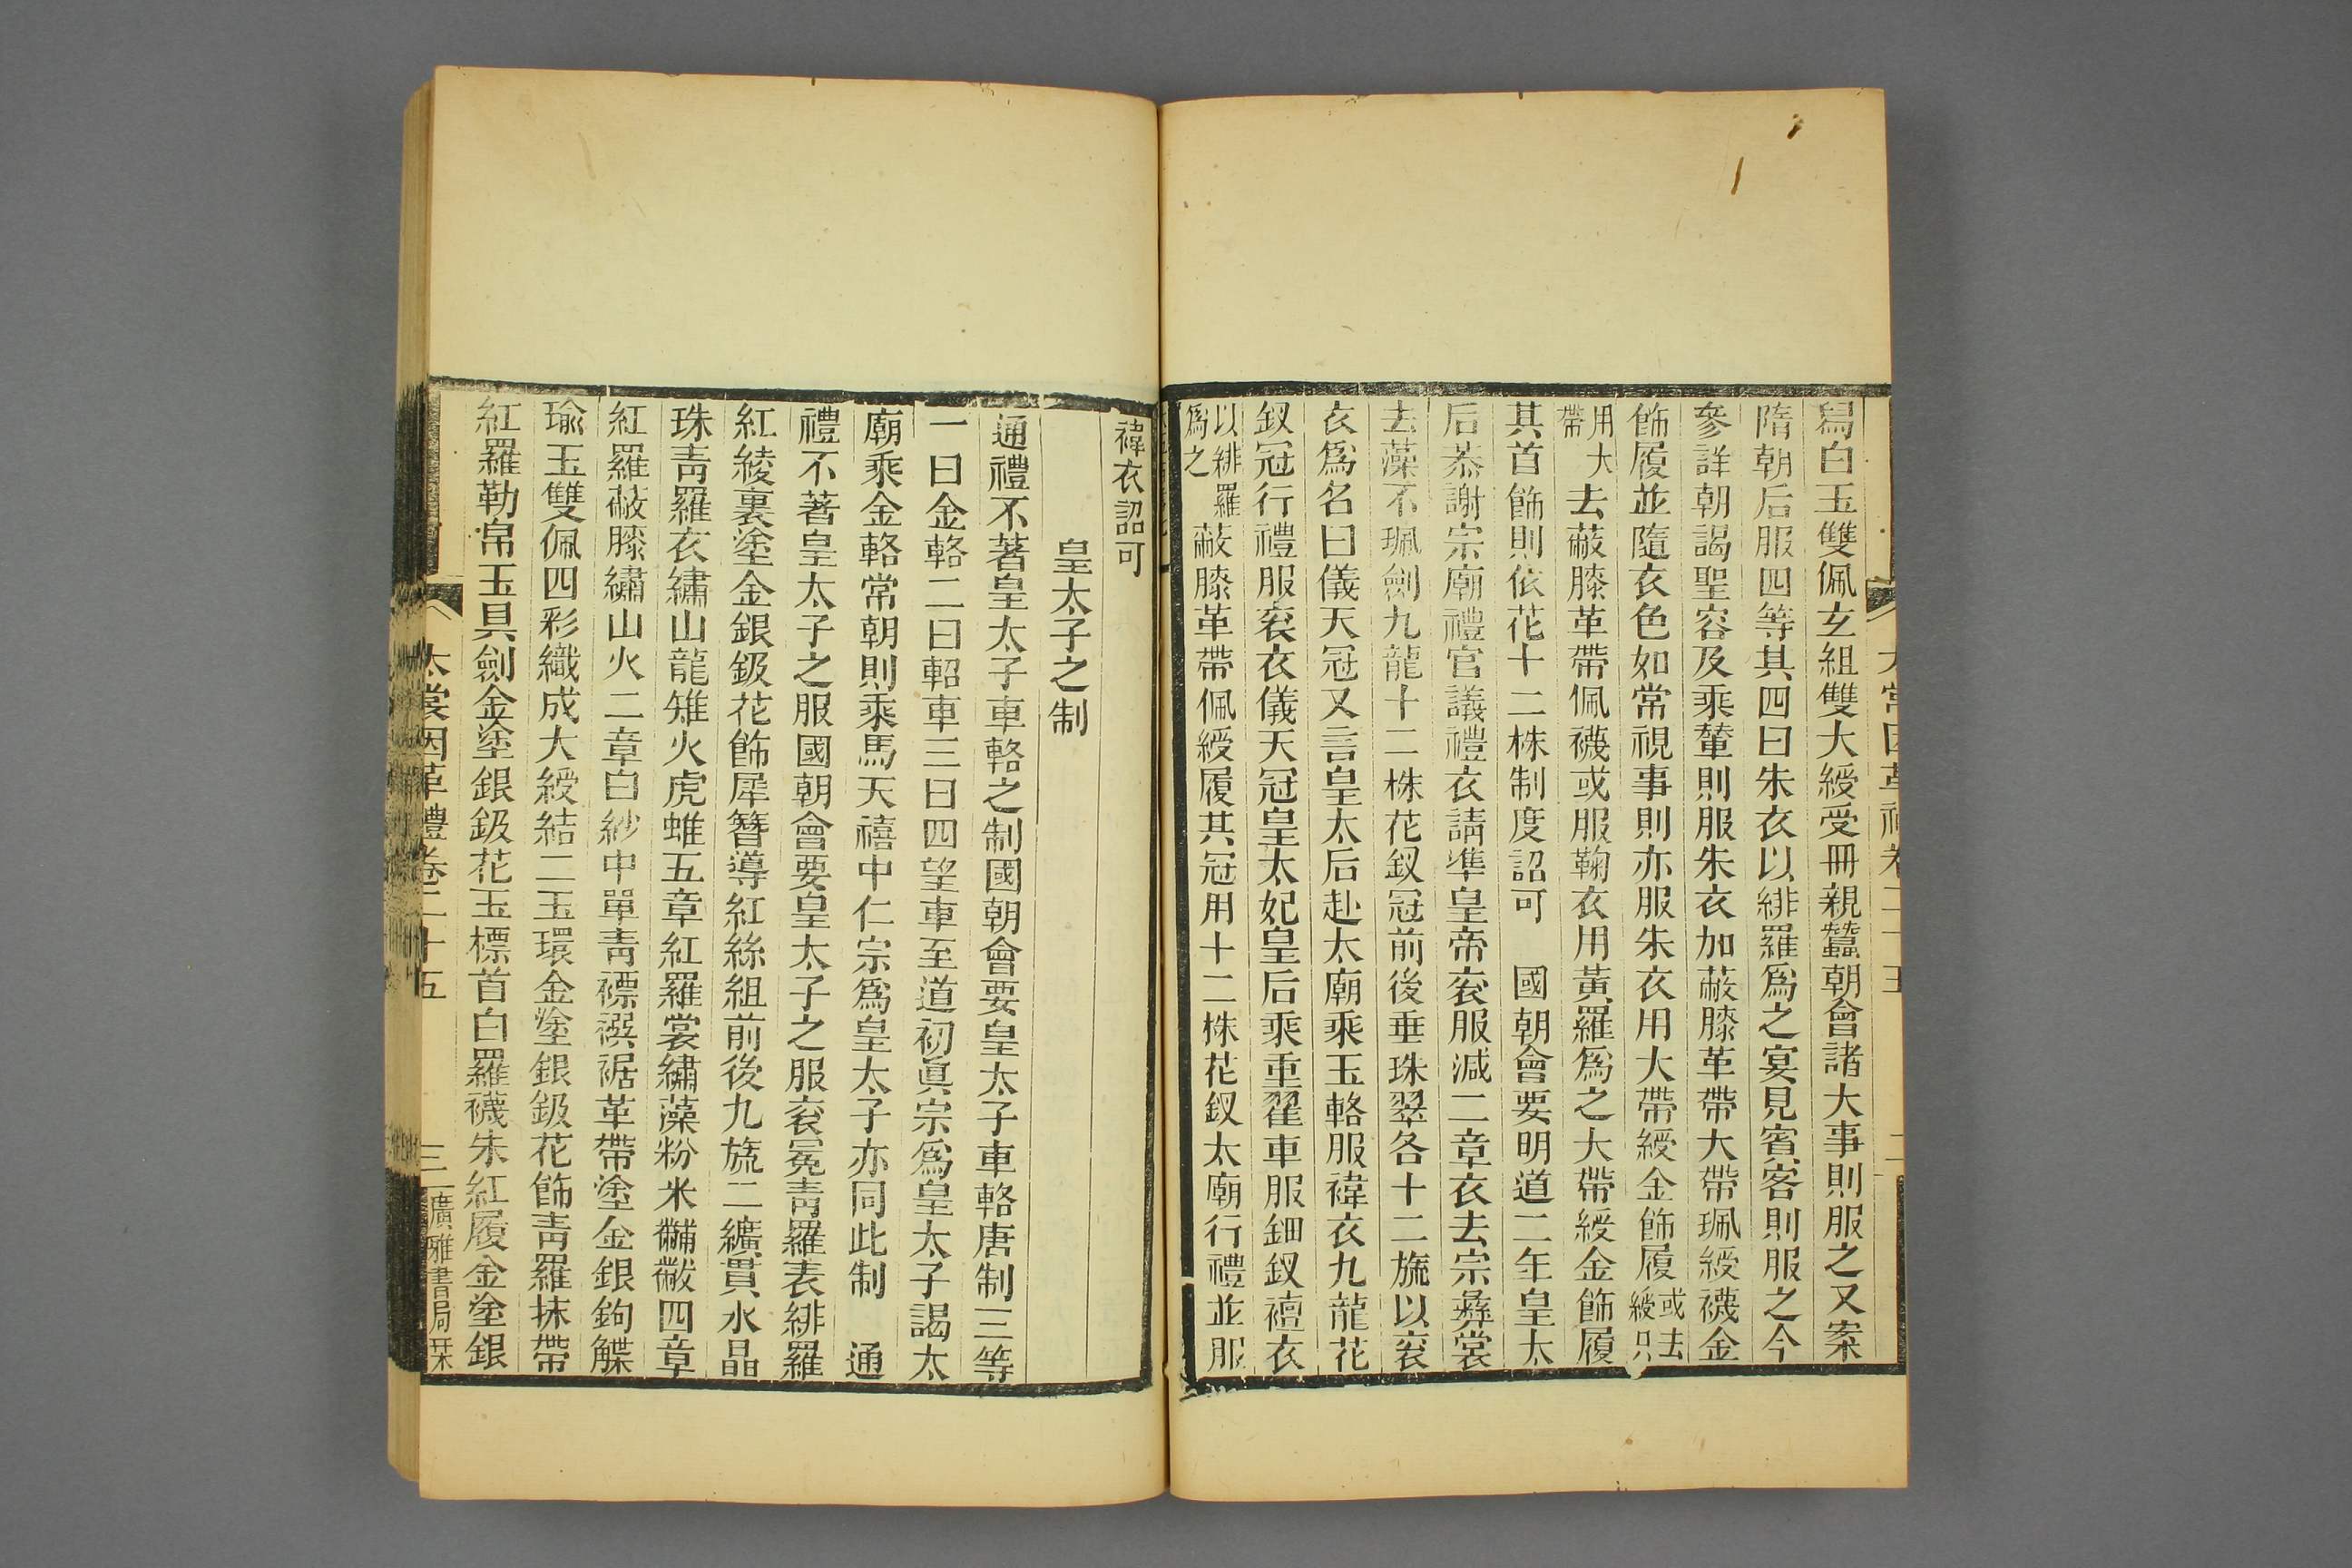 舄白玉雙佩玄組雙大綬受冊親蠶朝會諸大事則服之又案
隋朝后服四等其四曰朱衣以緋羅爲之宴見賓客則服之今
參詳朝謁聖容及乘輦則服朱衣加蔽膝革帶大帶珮綬襪金
飾履並隨衣色如常視事則亦服朱衣用大帶綬金飾履或去綬只
用大帶去蔽膝革帶佩襪或服鞠衣用黃羅爲之大帶綬金飾履
其首飾則依花十二株制度詔可　國朝會要明道二年皇太
后恭謝宗廟禮官議禮衣請準皇帝衮服減二章衣去宗彝裳
去藻不珮劍九龍十二株花釵冠前後垂珠翠各十二旒以衮
衣爲名曰儀天冠又言皇太后赴太廟乘玉輅服褘衣九龍花
釵冠行禮服衮衣儀天冠皇太妃皇后乘重翟車服鈿釵襢衣
以緋羅爲之蔽膝革帶佩綬履其冠用十二株花釵太廟行禮並服
褘衣詔可
皇太子之制
通禮不著皇太子車輅之制國朝會要皇太子車輅唐制三等
一曰金輅二曰軺車三曰四望車至道初眞宗爲皇太子謁太
廟乘金輅常朝則乘馬天禧中仁宗爲皇太子亦同此制　通
禮不著皇太子之服國朝會要皇太子之服衮冕靑羅表緋羅
紅綾裏塗金銀鈒花飾犀簪導紅絲組前後九旒二纊貫水晶
珠靑羅衣繡山龍雉火虎蜼五章紅羅裳繡藻粉米黼黻四章
紅羅蔽膝繡山火二章白紗中單靑褾襈裾革帶塗金銀鉤䚢
瑜玉雙佩四彩織成大綬結二玉環金塗銀鈒花飾靑羅抹帶
紅羅勒帛玉具劍金塗銀鈒花玉標首白羅襪朱紅履金塗銀
太常因革禮卷二十五　三　廣雅書局栞